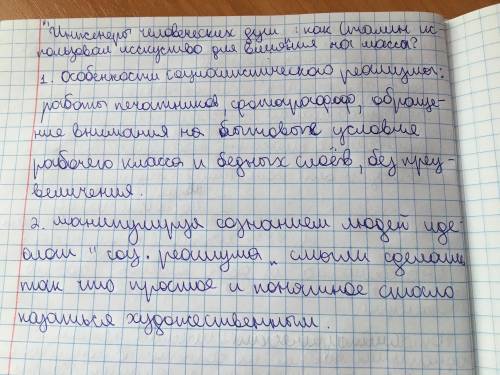 "Инженеры человеческих душ": как Сталин ис-
пользовал исскуство для влияния на массы?
1. Особенности социалистического реализма:
работы печатников, фотографов, обраще-
ние внимания на бытовые условие
рабочего класса и бедных слоёв, без преу-
величения.
2. манипулируя сознанием людей иде-
алом "соц. реализма" смогли сделать
так что простое и понятное стало
казаться художественным.